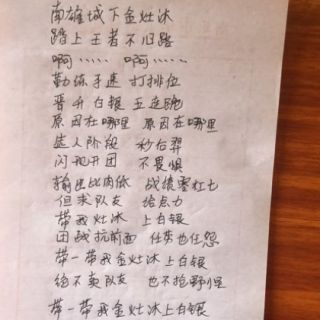 南雄城下金灶沐
踏上王者不归路
啊…… 啊……
勤练手速 打排位
晋升白银 五连跪
原因在哪里 原因在哪里
选人阶段 秒后羿
闪现开团 不畏惧
输出比肉低 战绩零杠七
但求队友 给点力
带我灶沐 上白银
团战抗前面 任劳也任怨
带一带我金灶沐上白银
绝不卖队友 也不抢野怪
带一带我金灶沐上白银